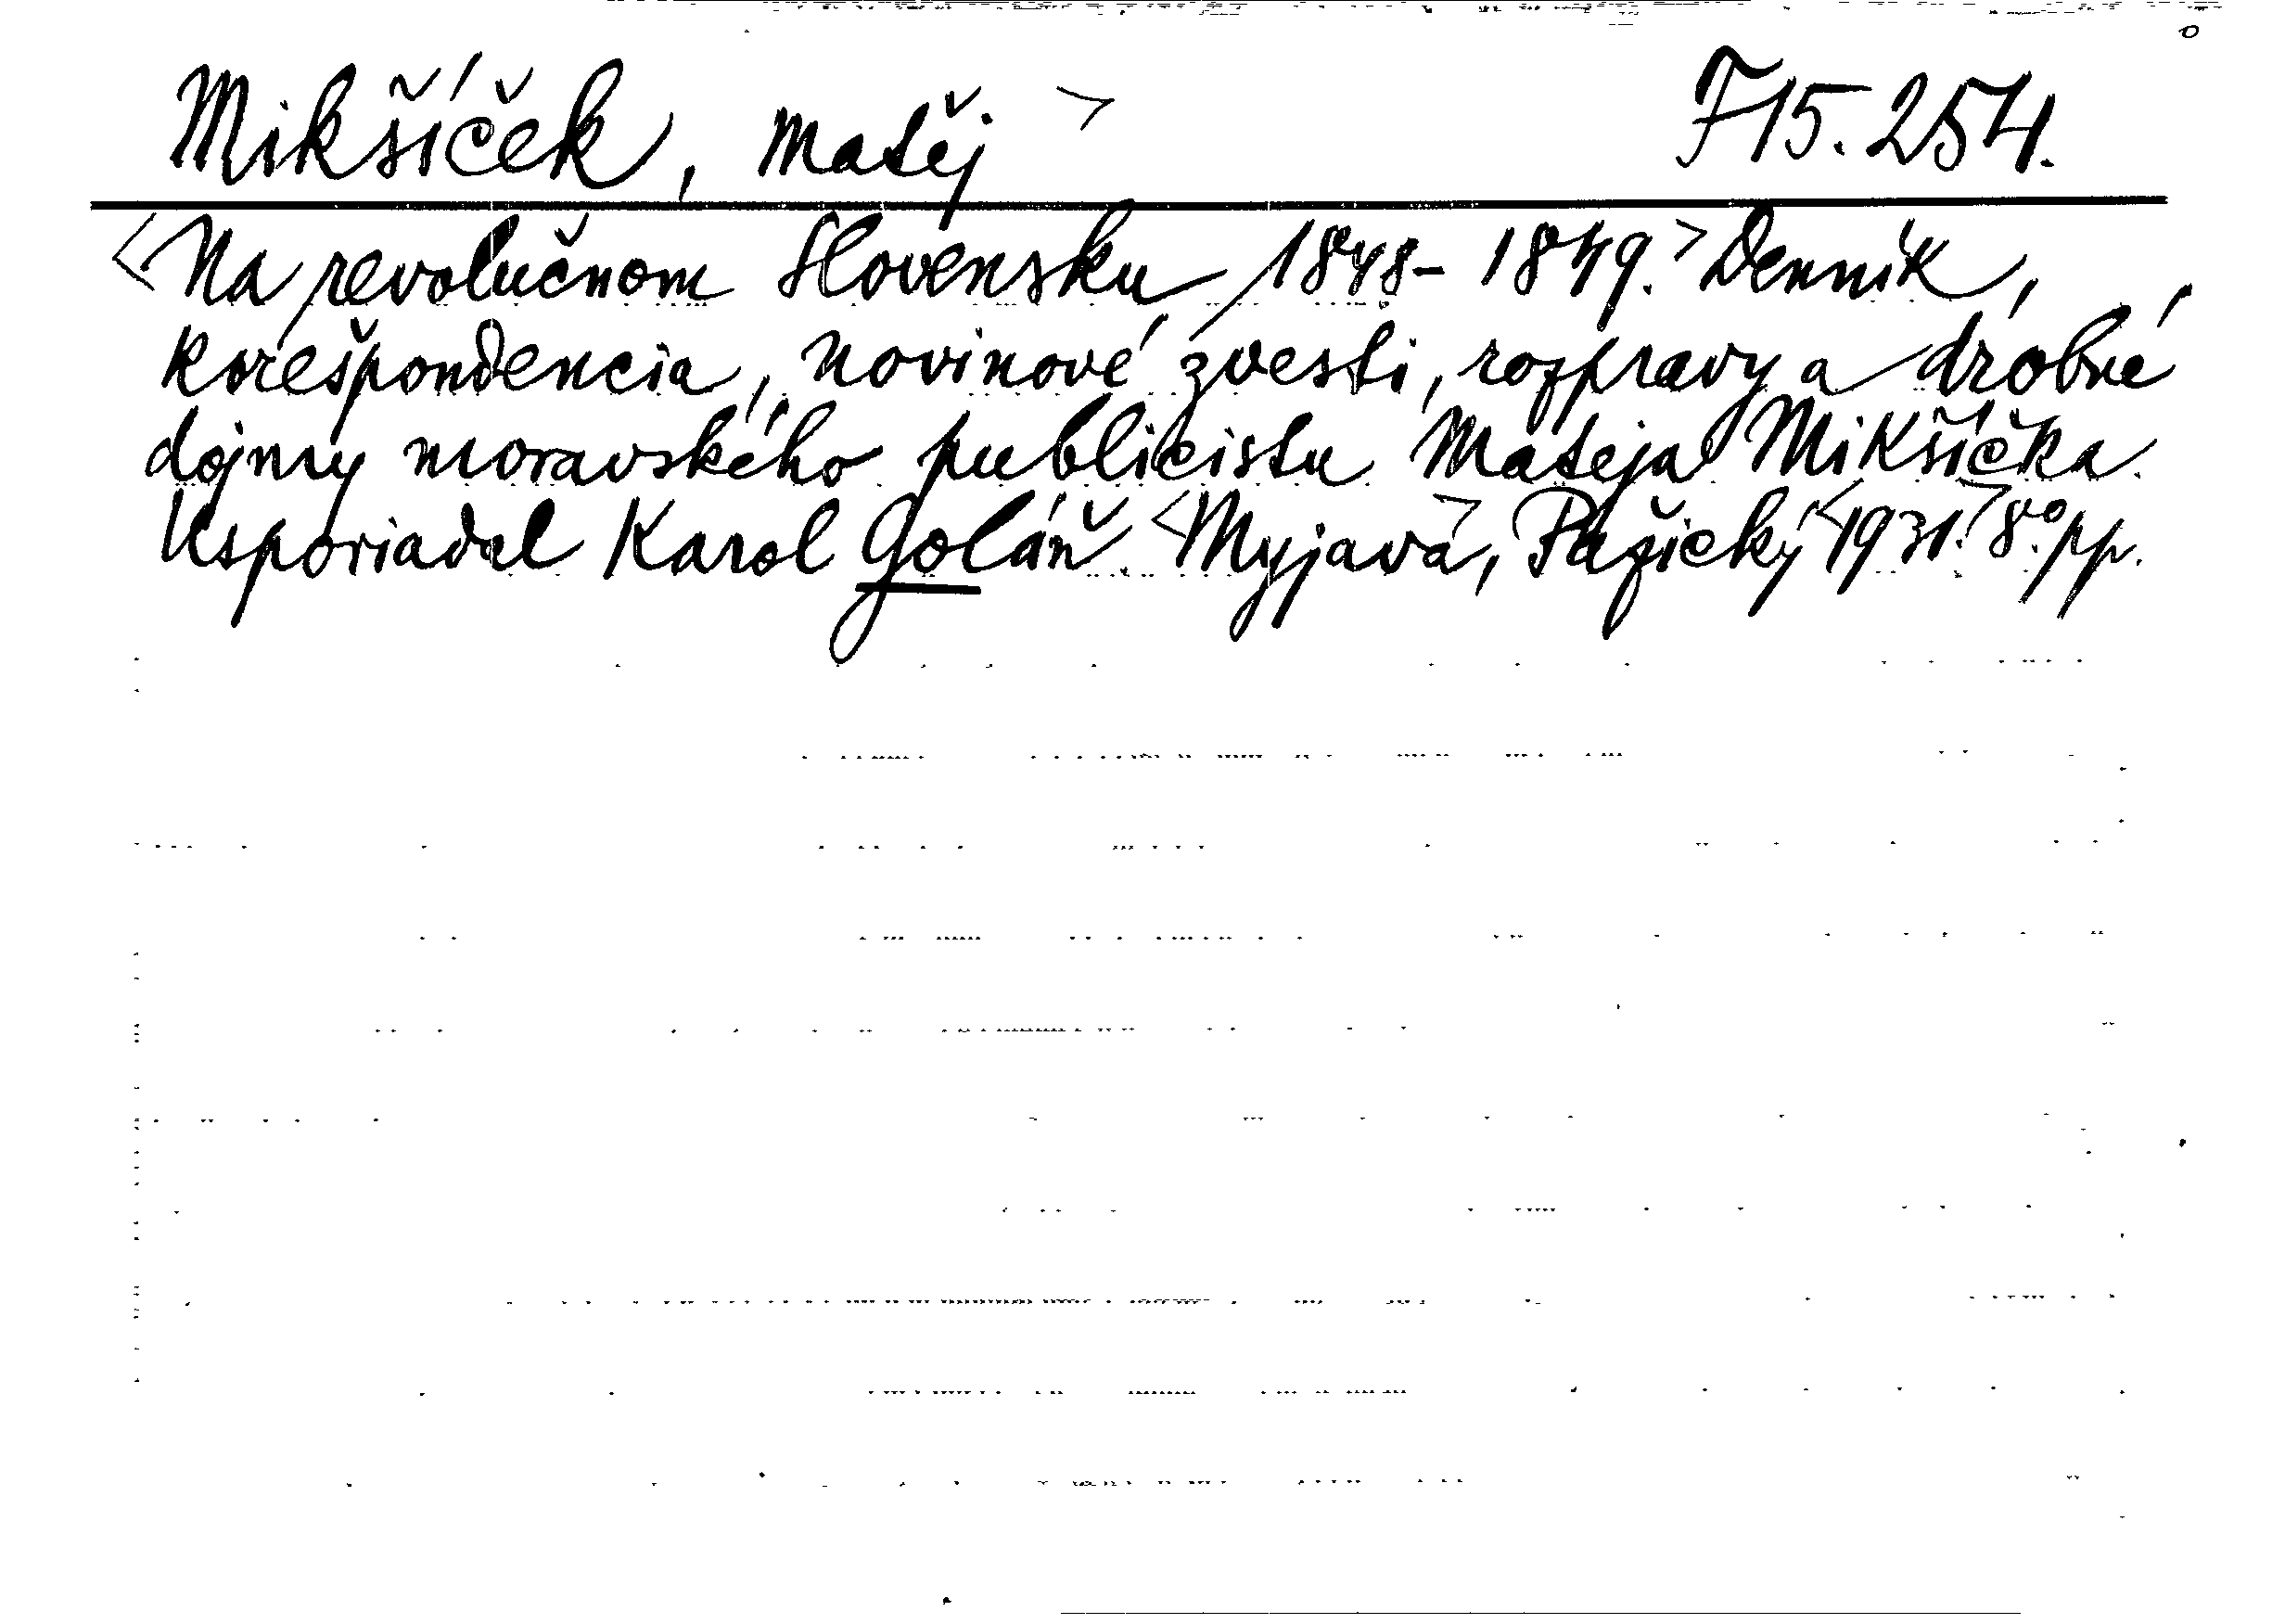 Mikšíček, Matěj > F15.254.
<Na revolučnom Slovensku 1848-1849.> Denník,
korešpondencia, novinové zvesti, rozpravy a drobné
dojmy moravského publicistu Mateja Mikšíčka.
Usporiadal Karol Goláň. <Myjava>, Pažický <1931.> 8° pp.